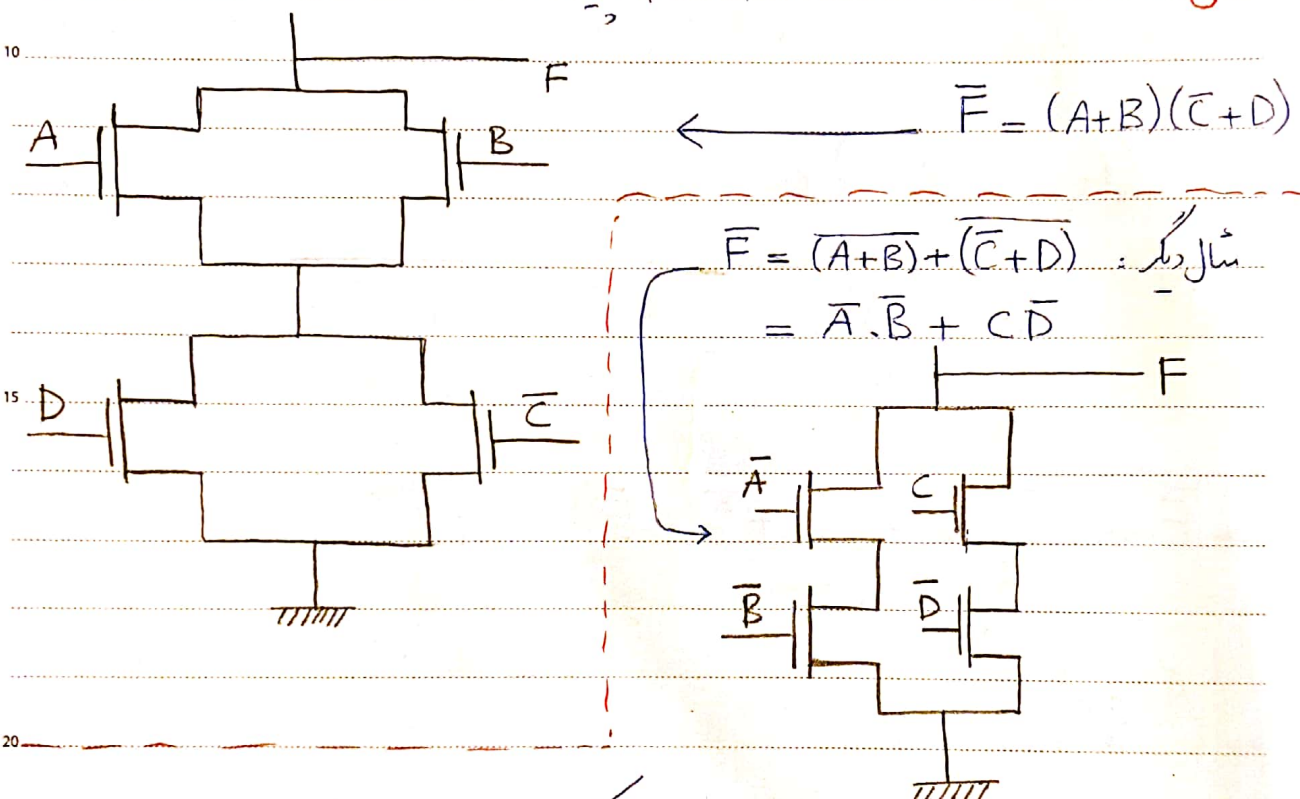 10
F
A
B
F̅ = (A+B)(C̅+D)
مثال دیگر :
F̅ = \overline{(A+B)} + \overline{(C̅+D)}
= A̅.B̅ + CD̅
F
15
D
C̅
A̅
C
B̅
D̅
20